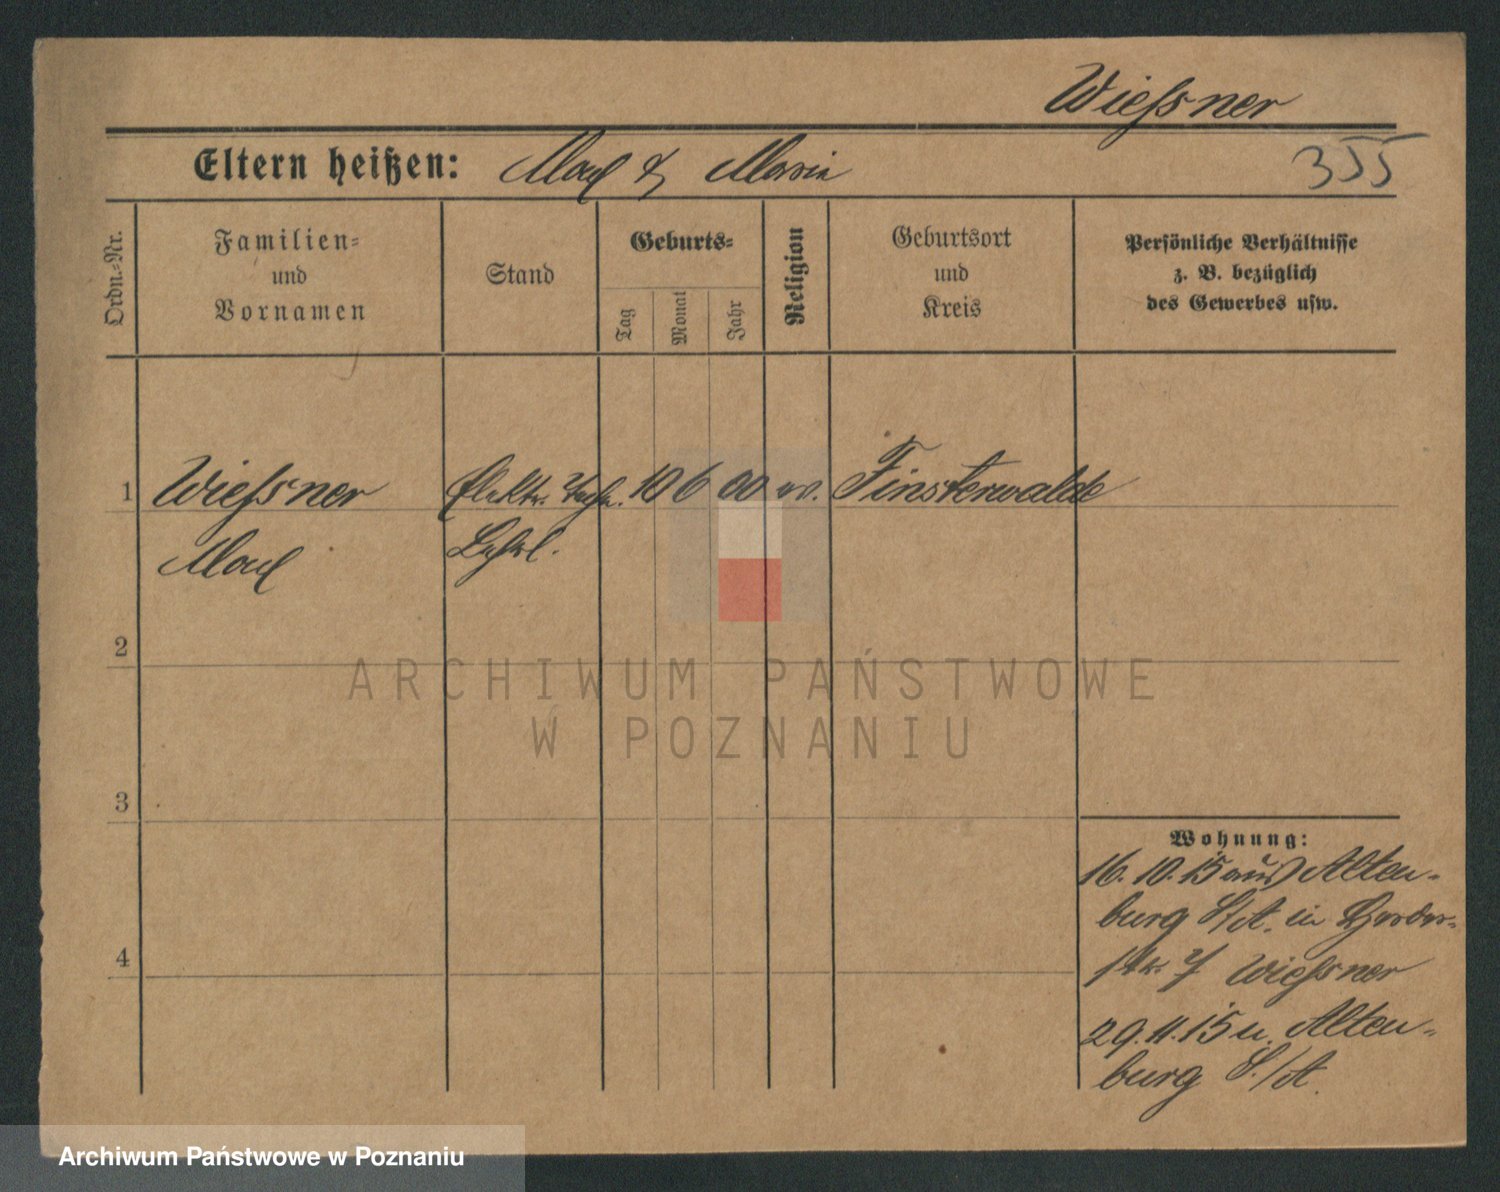 Wießner
355
Eltern heißen: Max & Maria
Ordn.-Nr.
Familien-
und
Vornamen
Stand
Geburts-
Tag
Monat
Jahr
Religion
Geburtsort
und
Kreis
Persönliche Verhältnisse
z. B. bezüglich
des Gewerbes usw.
1 Wießner Elektr. Techn. 10 6 00 ev. Finsterwalde
Max Lehrl.
2
3
4
Wohnung:
16.10.15 aus Alten-
burg S/A. in Herder-
str. 7 Wießner
29.11.15 n. Alten-
burg S./A.
ARCHIWUM PAŃSTWOWE
W POZNANIU
Archiwum Państwowe w Poznaniu